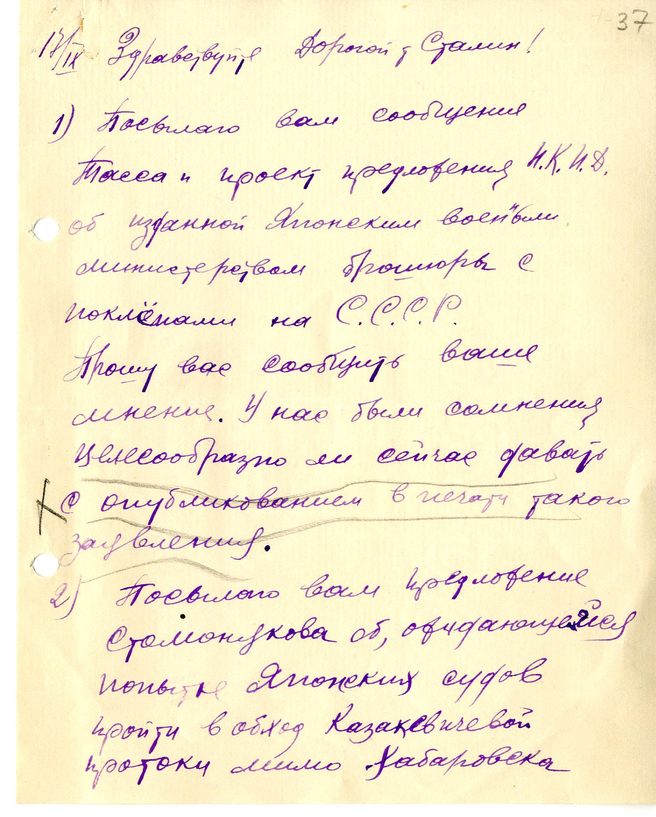 37
17/IX Здравствуйте Дорогой т Сталин!
1) Посылаю вам сообщения
Тасса и проект предложения Н.К.И.Д.
об изданной Японским военным
министерством брошюры с
поклёпами на С.С.С.Р.
Прошу вас сообщить ваше
мнение. У нас были сомнения
целесообразно ли сейчас давать
с опубликованием в печати такого
заявления.
2) Посылаю вам предложение
Стомонякова об, ожидающейся
попытке Японских судов
пройти в обход Казакевичевой
протоки мимо Хабаровска